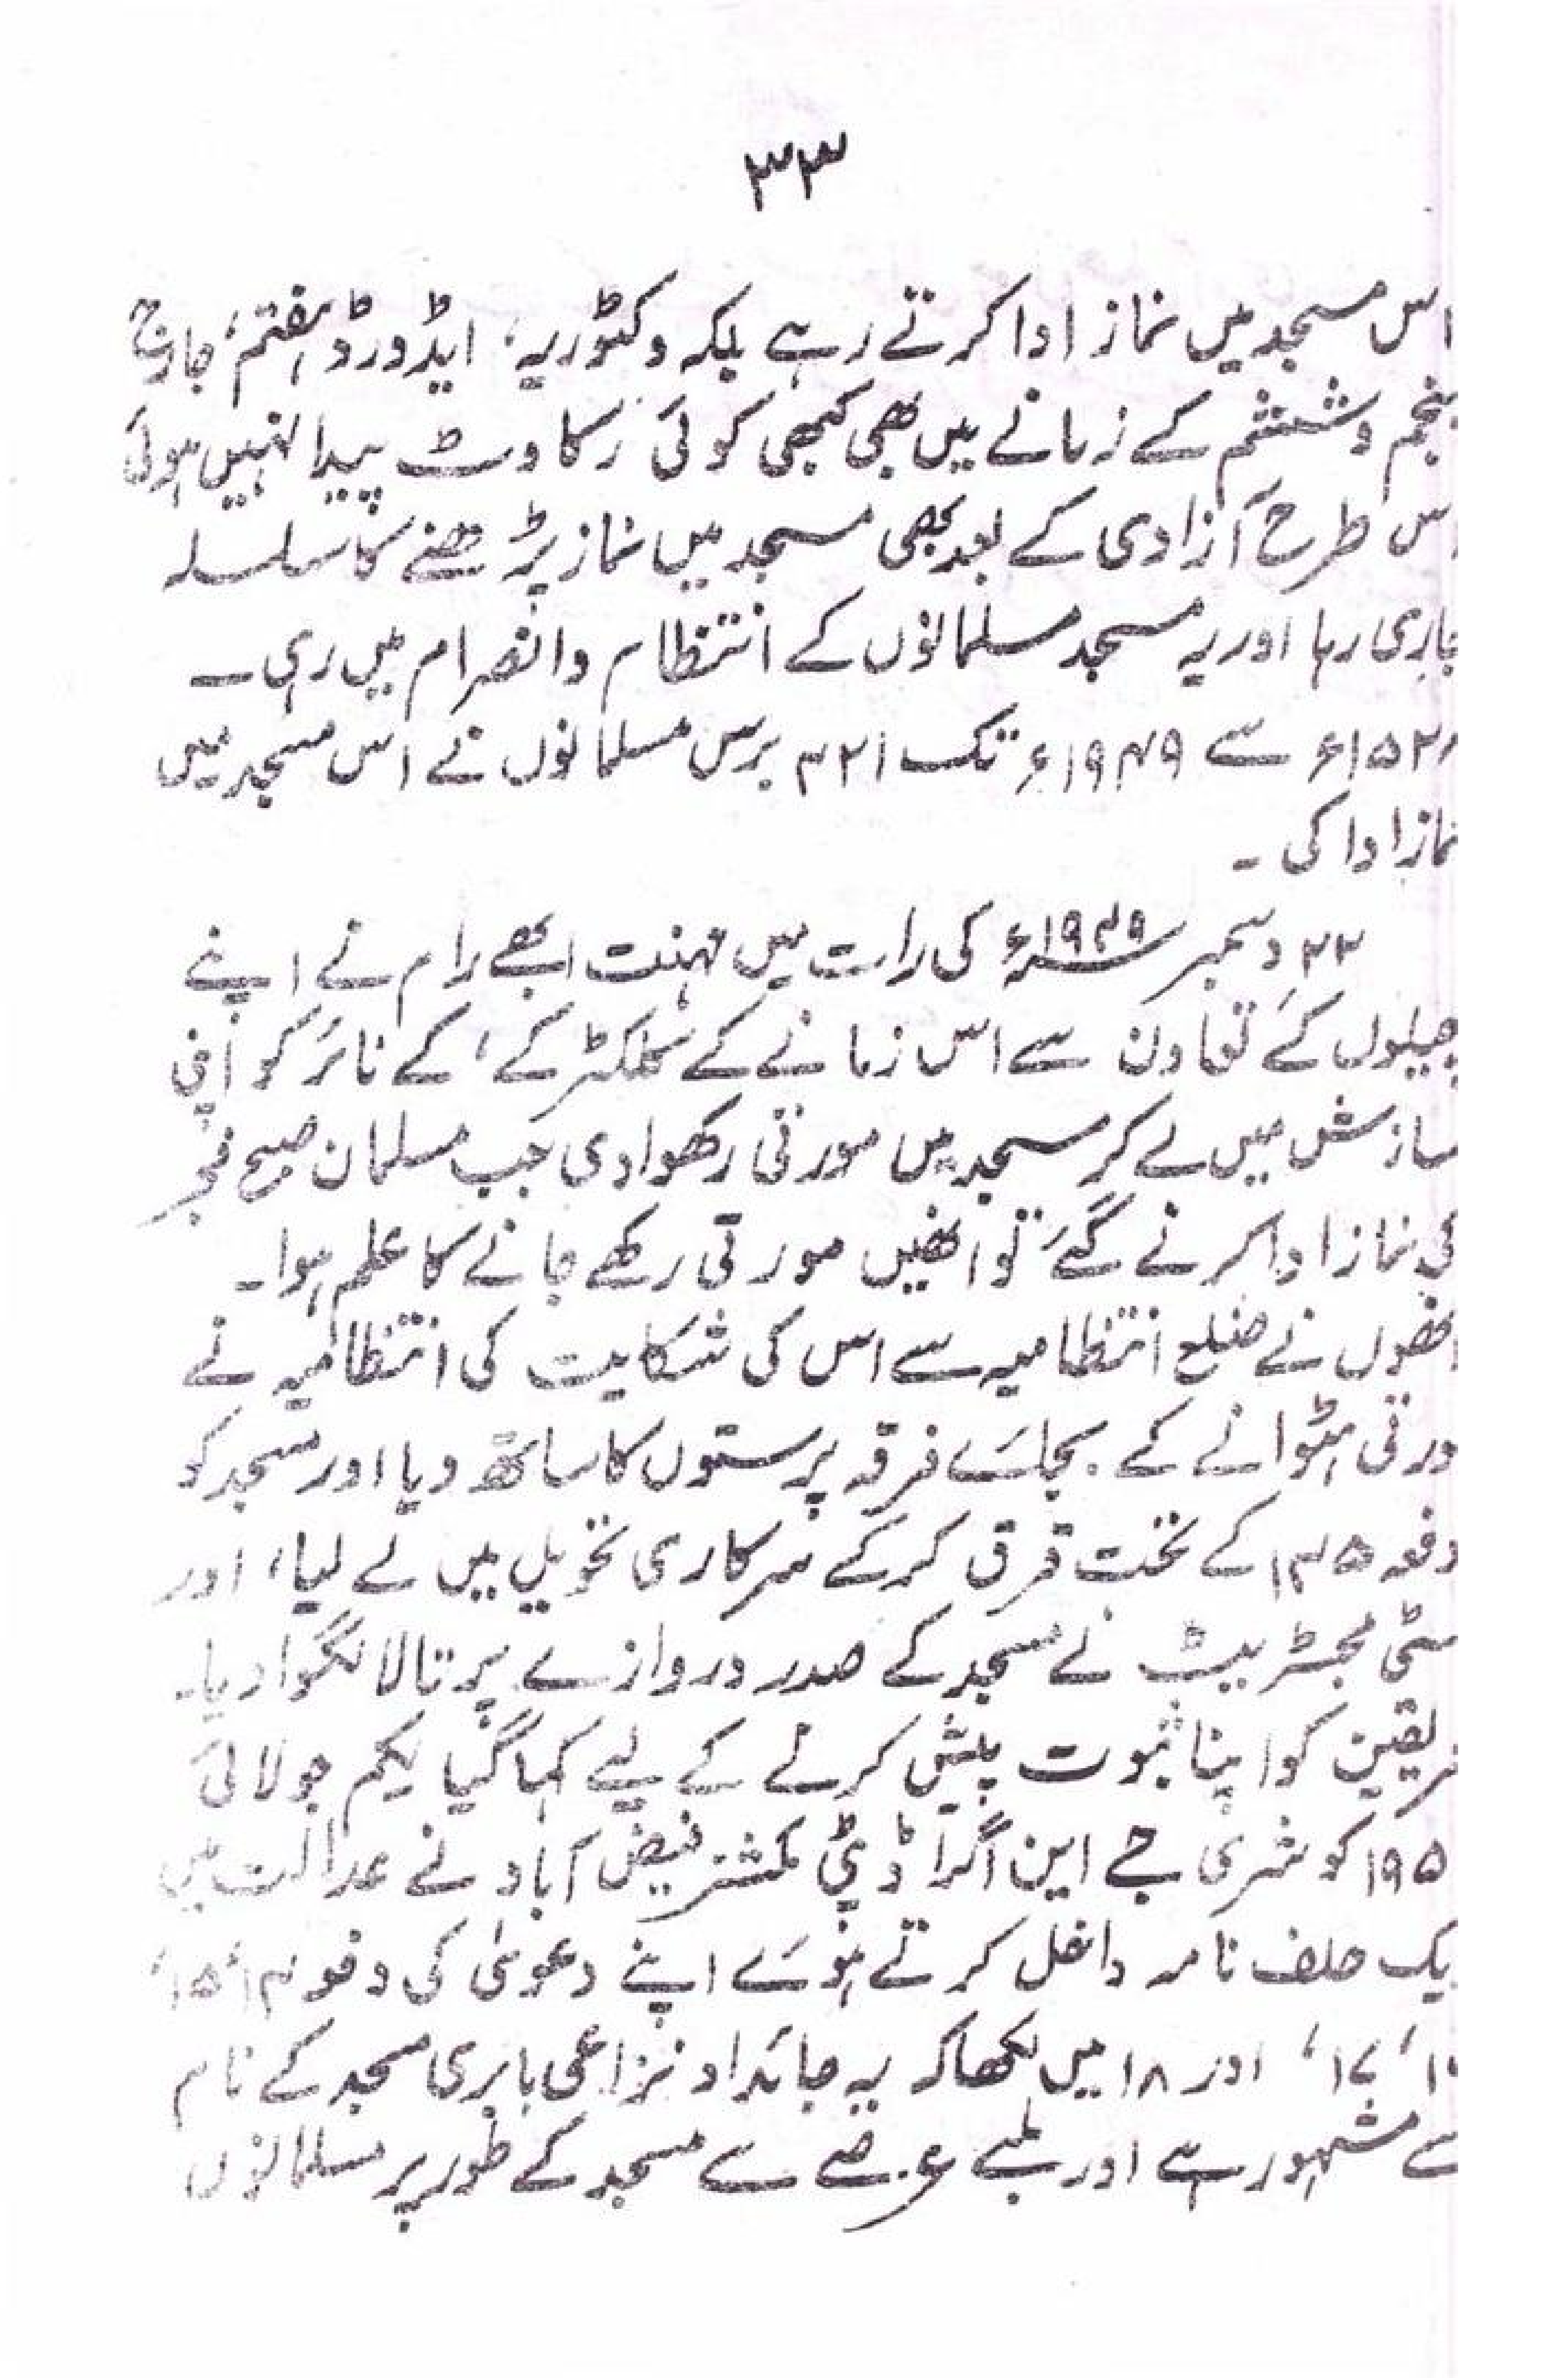 ۳۳
اس مسجد میں نماز ادا کرتے رہے بلکہ وکٹوریہ، ایڈورڈ ہفتم، جارج
پنجم و ششم کے زمانے میں بھی کبھی کوئی رکاوٹ پیدا نہیں ہوئی
اس طرح آزادی کے بعد بھی مسجد میں نماز پڑھنے کا سلسلہ
جاری رہا اور یہ مسجد مسلمانوں کے انتظام و انصرام میں رہی ۔
۱۵۲۸ء سے ۱۹۴۹ء تک ۴۲۱ برس مسلمانوں نے اس مسجد میں
نماز ادا کی ۔
۲۳ دسمبر ۱۹۴۹ء کی رات میں مہنت ابھے رام نے اپنے
چیلوں کے تعاون سے اس زمانے کے کلکٹر کے، کے نائر کو اپنی
سازش میں لے کر مسجد میں مورتی رکھوا دی جب مسلمان صبح فجر
کی نماز ادا کرنے گئے تو انھیں مورتی رکھے جانے کا علم ہوا ۔
انھوں نے ضلع انتظامیہ سے اس کی شکایت کی انتظامیہ نے
مورتی ہٹوانے کے بجائے فرقہ پرستوں کا ساتھ دیا اور مسجد کو
دفعہ ۱۴۵ کے تحت قرق کر کے سرکاری تحویل میں لے لیا، اور
سٹی مجسٹریٹ نے مسجد کے صدر دروازے پر تالا لگوا دیا۔
فریقین کو اپنا ثبوت پیش کرنے کے لیے کہا گیا یکم جولائی
۱۹۵ کو شری جے این اگرا ڈپٹی کمشنر فیض آباد نے عدالت میں
ایک حلف نامہ داخل کرتے ہوئے اپنے دعویٰ کی دفعہ ۱۴، ۱۵،
۱۷، اور ۱۸ میں لکھا کہ یہ جائداد نزاعی بابری مسجد کے نام
سے مشہور ہے اور لمبے عرصے سے مسجد کے طور پر مسلمانوں